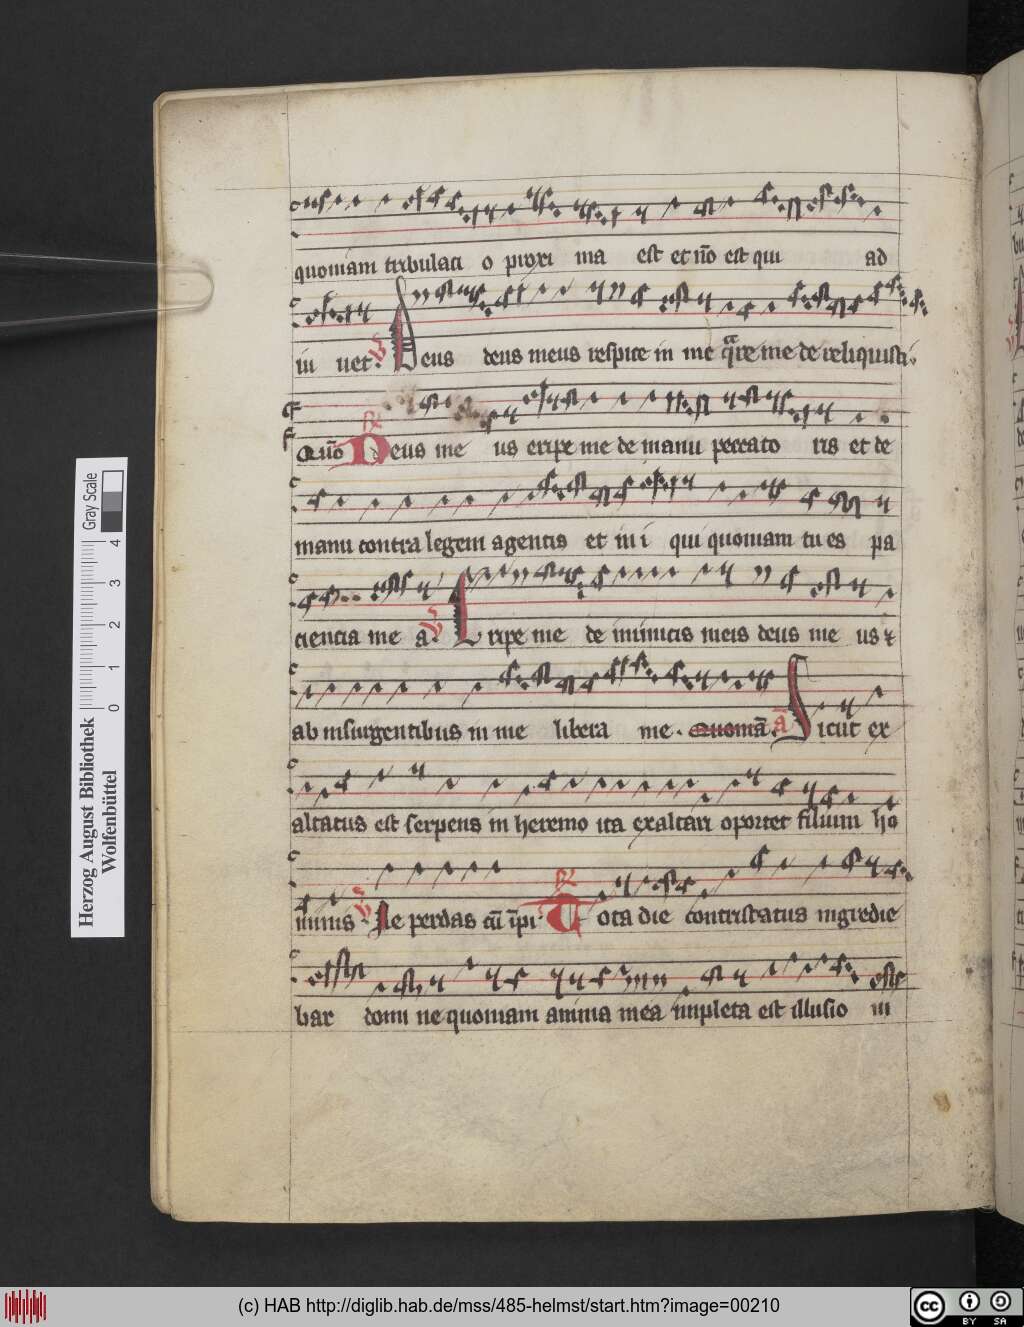 quoniam tribulaci o proxi ma est et nõ est qui ad
iu uet. V Deus deus meus respice in me quare me de reliquisti.
Quõ R Deus me us eripe me de manu peccato ris et de
manu contra legem agentis et in i qui quoniam tu es pa
ciencia me a. V Eripe me de inimicis meis deus me us et
ab insurgentibus in me libera me. Quoniã. ã Sicut ex
altatus est serpens in heremo ita exaltari oportet filium ho
minis. V Ne perdas cũ ĩpi R Tota die contristatus ingredie
bar domi ne quoniam anima mea impleta est illusio ni
Herzog August Bibliothek
Wolfenbüttel
0 1 2 3 4 Gray Scale
(c) HAB http://diglib.hab.de/mss/485-helmst/start.htm?image=00210
cc BY SA